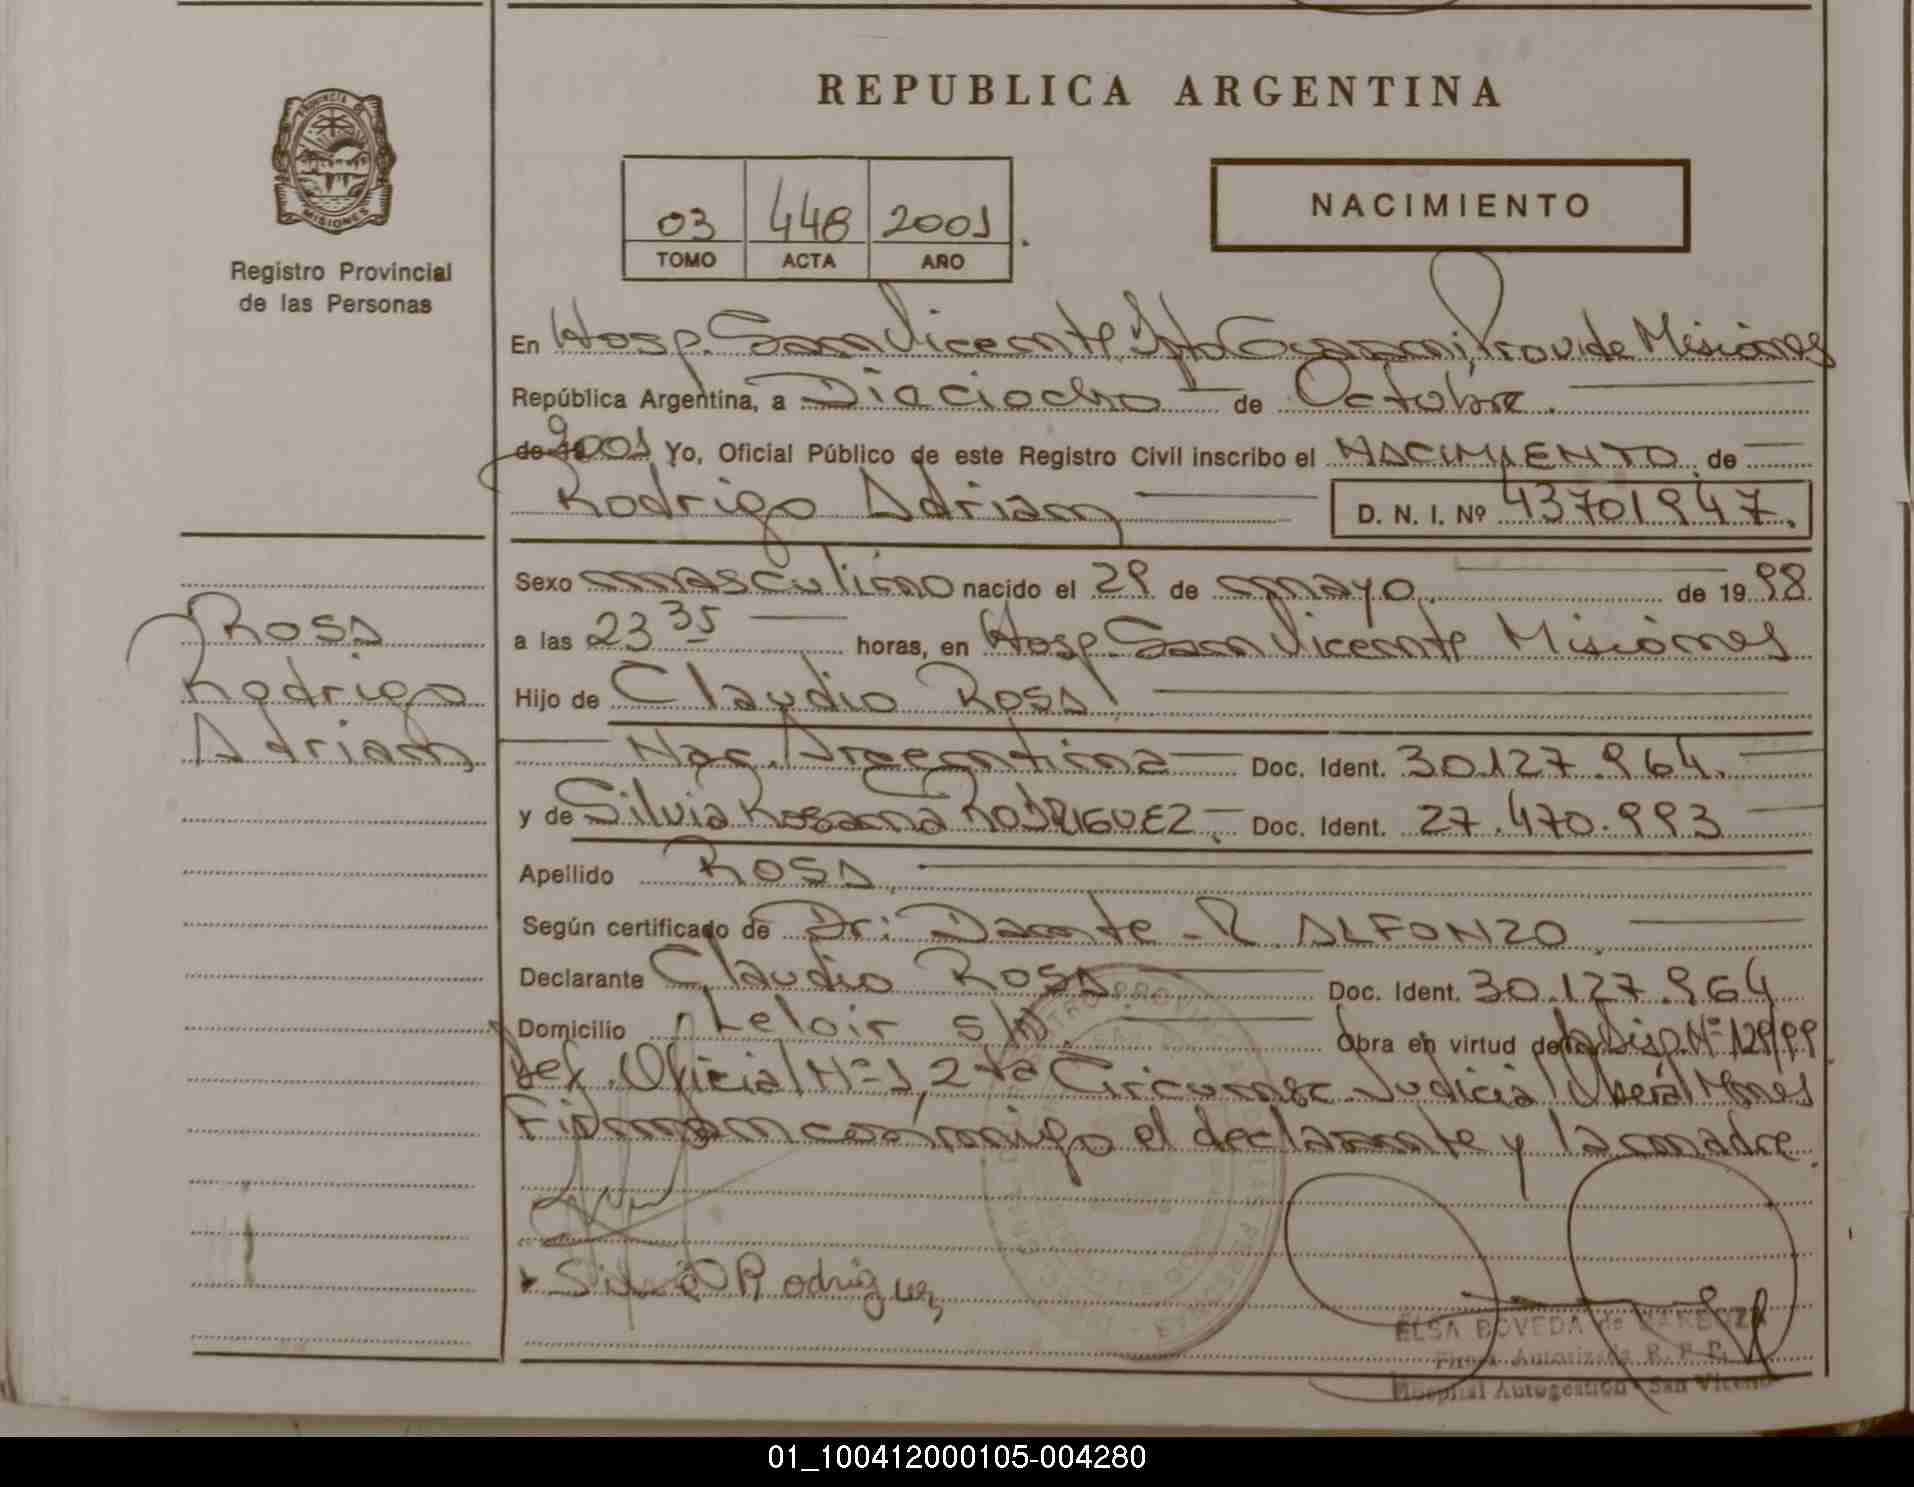 REPUBLICA ARGENTINA
PROVINCIA
MISIONES
Registro Provincial
de las Personas
03 448 2001
TOMO ACTA AÑO
NACIMIENTO
En Hosp. San Vicente, Dpto Guarani, Prov. de Misiones
República Argentina, a Dieciocho de Octubre.
de 2001 Yo, Oficial Público de este Registro Civil inscribo el NACIMIENTO de
Rodrigo Adrian D. N. I. Nº 43701947.
Sexo masculino nacido el 29 de mayo de 1998
a las 23 35 horas, en Hosp. San Vicente Misiones
Hijo de Claudio Rosa
Nac. Argentina Doc. Ident. 30.127.964.
y de Silvia Rosana RODRIGUEZ. Doc. Ident. 27.470.993
Apellido ROSA
Según certificado de Dr: Dante R. ALFONZO
Declarante Claudio Rosa Doc. Ident. 30.127.964
Domicilio Leloir s/n Obra en virtud de la Disp. Nº 129/99
Def. Oficial Nº 1, 2da Circunsc. Judicial Oberá Mnes
Firman conmigo el declarante y la madre.
Rosa
Rodrigo
Adrian
Silvia Rodriguez
ELSA BOVEDA de BARBOZA
Firma Autorizada R. P. P.
Hospital Autogestión - San Vicente
01_100412000105-004280